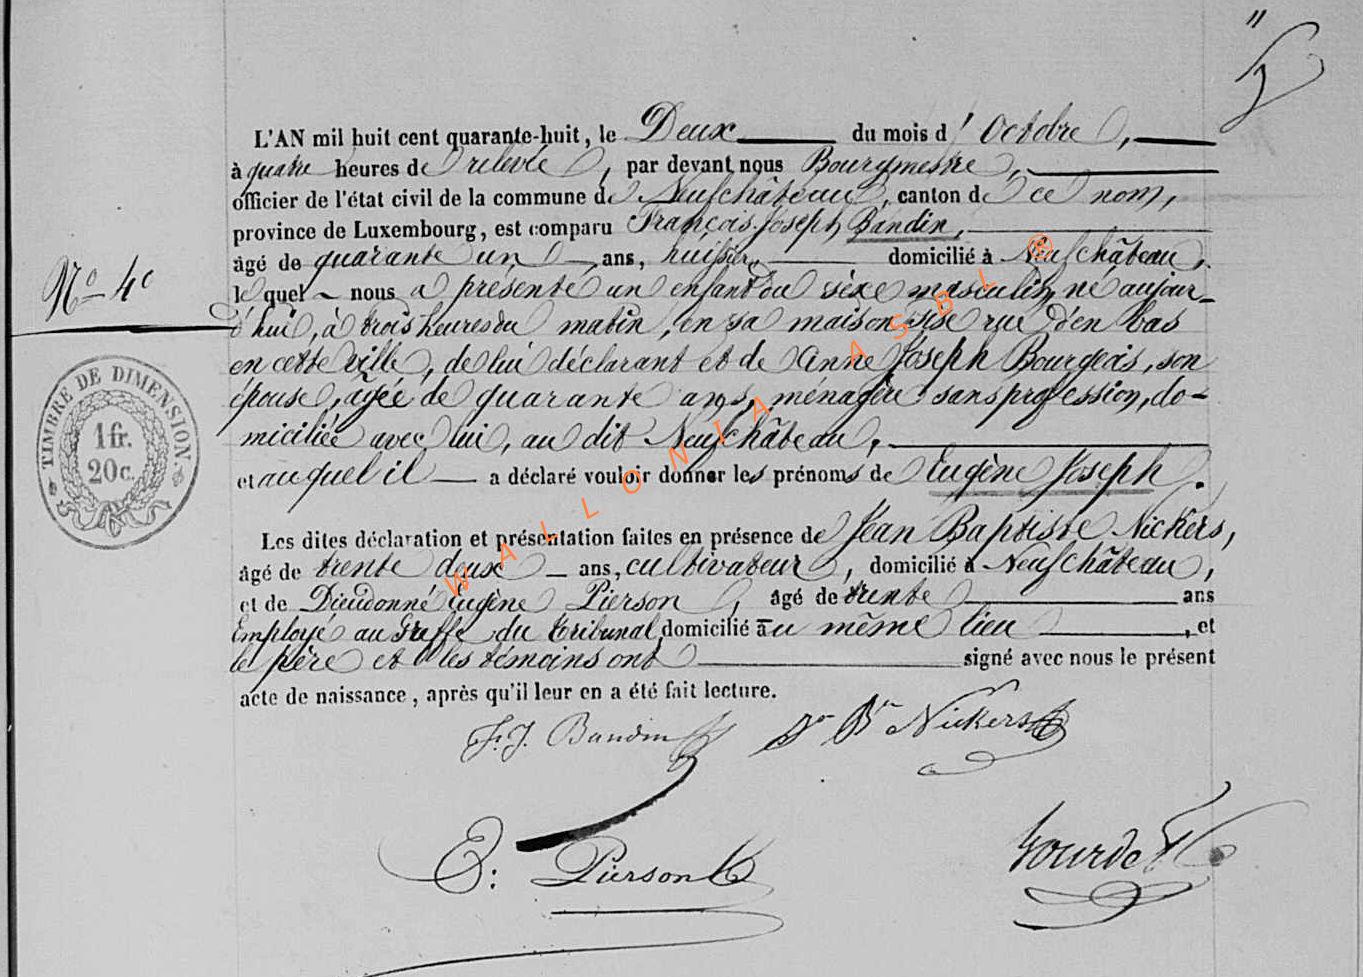 L'AN mil huit cent quarante-huit, le Deux du mois d'Octobre,
à quatre heures de relevée, par devant nous Bourgmestre,
officier de l'état civil de la commune de Neufchâteau, canton de ce nom,
province de Luxembourg, est comparu François Joseph Bandin,
âgé de quarante un ans, huissier, domicilié à Neufchâteau,
N° 40
le quel nous a présenté un enfant du sèxe masculin, né aujour-
d'hui, à trois heures du matin, en sa maison sise rue d'en bas
en cette ville, de lui déclarant et de Anne Joseph Bourgeois, son
épouse, âgée de quarante ans, ménagère sans profession, do-
miciliée avec lui, au dit Neufchâteau,
et auquel il a déclaré vouloir donner les prénoms de Eugène Joseph.
TIMBRE DE DIMENSION
1 fr.
20 c.
Les dites déclaration et présentation faites en présence de Jean Baptiste Nickers,
âgé de trente deux ans, cultivateur, domicilié à Neufchâteau,
et de Dieudonné Eugène Pierson, âgé de trente ans
Employé au Greffe du tribunal domicilié au même lieu, et
le père et les témoins ont signé avec nous le présent
acte de naissance, après qu'il leur en a été fait lecture.
F. J. Bandin Jn Bte Nickers
E. Pierson
WALLONIA ASBL ®